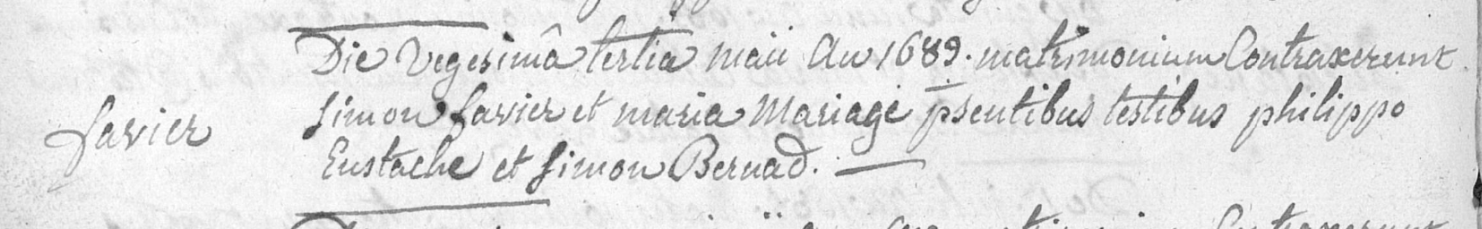 Die vegesimâ tertia maii an 1689. matrimonium Contraxerunt
favier Simon favier et maria Mariage p̄sentibus testibus philippo
Eustache et Simon Bernad.